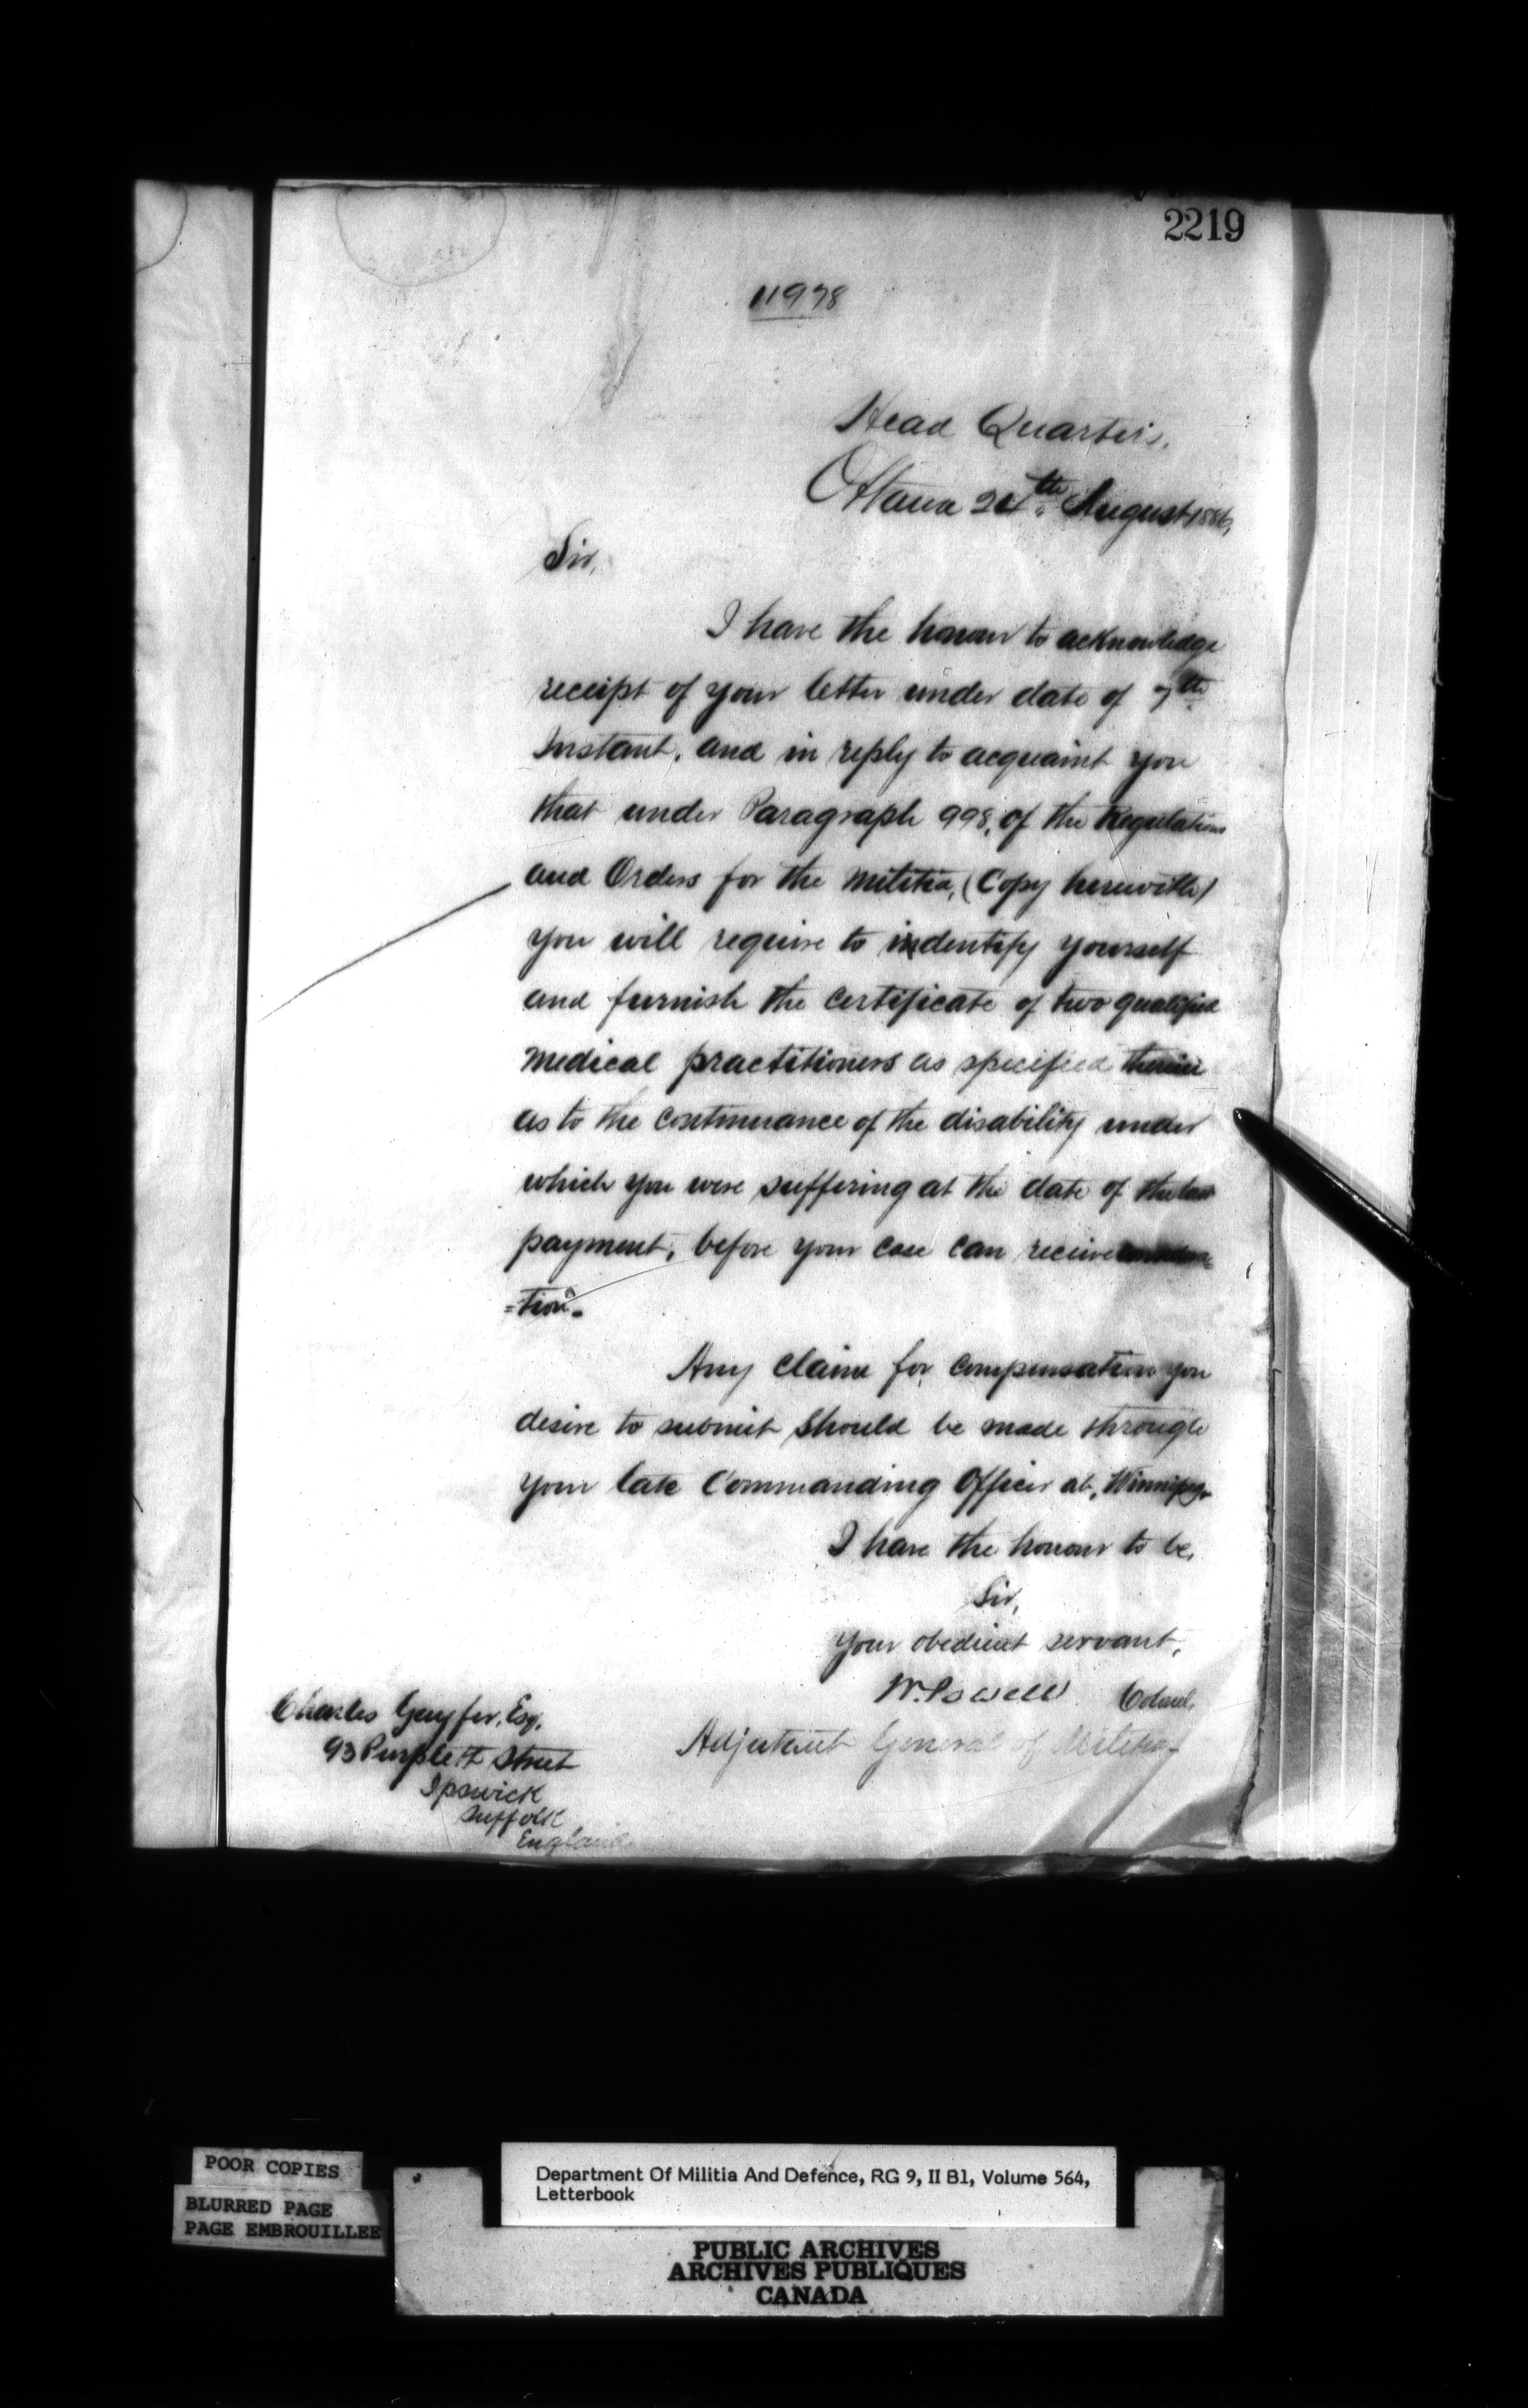 2219
11978
Head Quarters,
Ottawa 24th August 1886,
Sir,
I have the honour to acknowledge
receipt of your letter under date of 7th
Instant, and in reply to acquaint you
that under Paragraph 998, of the Regulations
and Orders for the Militia, (Copy herewith)
you will require to indentify yourself
and furnish the certificate of two qualified
medical practitioners as specified therein
as to the continuance of the disability under
which you were suffering at the date of the last
payment, before your case can receive considera
=tion.
Any claim for compensation you
desire to submit should be made through
your late Commanding Officer at, Winnipeg.
I have the honour to be,
Sir,
Your obedient servant,
W. Powell Colonel
Adjutant General of Militia
Charles Gayfer, Esq,
93 Purplett Street
Ipswick
Suffolk
England
POOR COPIES
BLURRED PAGE
PAGE EMBROUILLEE
Department Of Militia And Defence, RG 9, II B1, Volume 564,
Letterbook
PUBLIC ARCHIVES
ARCHIVES PUBLIQUES
CANADA